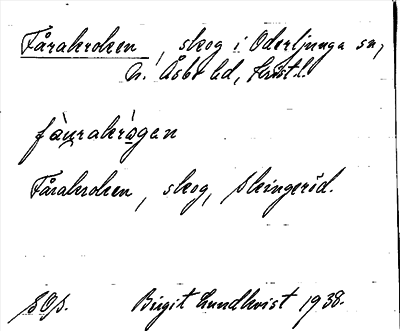 Fårakroken, skog i Oderljunga sn,
N. Åsbo hd, Krist l.
fàurakrògan
Fårakroken, skog, Skingeröd.
Birgit Lundkvist 1938.